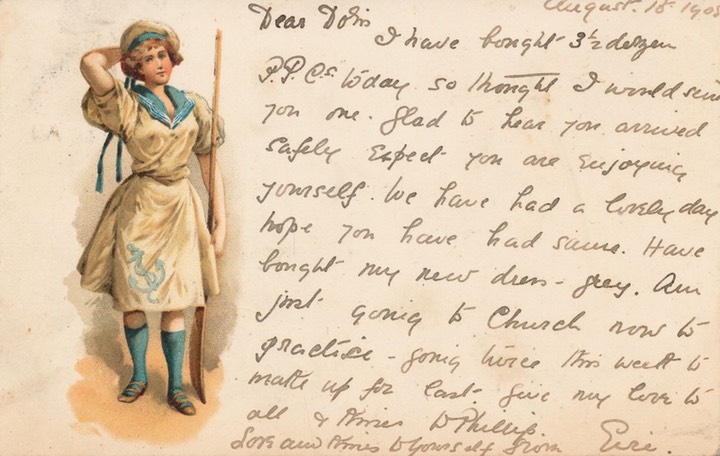 August. 18 190
Dear Doris
I have bought 3½ dozen
P.P.Cs. today so thought I would send
you one. Glad to hear you arrived
safely Expect you are Enjoying
yourself. We have had a lovely day
hope you have had same. Have
bought my new dress - grey. Am
just going to Church now to
practise - going twice this week to
make up for last. Give my love to
all & kisses to Phillip.
Love and kisses to yourself from